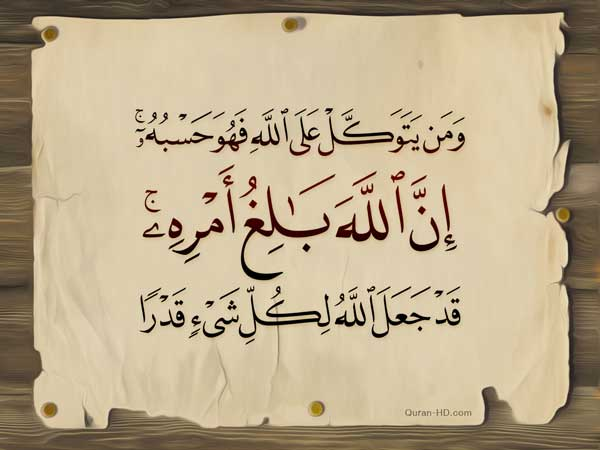 وَمَن يَتَوَكَّلْ عَلَى ٱللَّهِ فَهُوَ حَسْبُهُۥٓ ۚ
إِنَّ ٱللَّهَ بَـٰلِغُ أَمْرِهِۦ ۚ
قَدْ جَعَلَ ٱللَّهُ لِكُلِّ شَىْءٍ قَدْرًا
Quran-HD.com